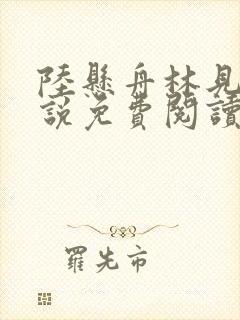 陸懸舟林見
說免費閱讀
羅先市